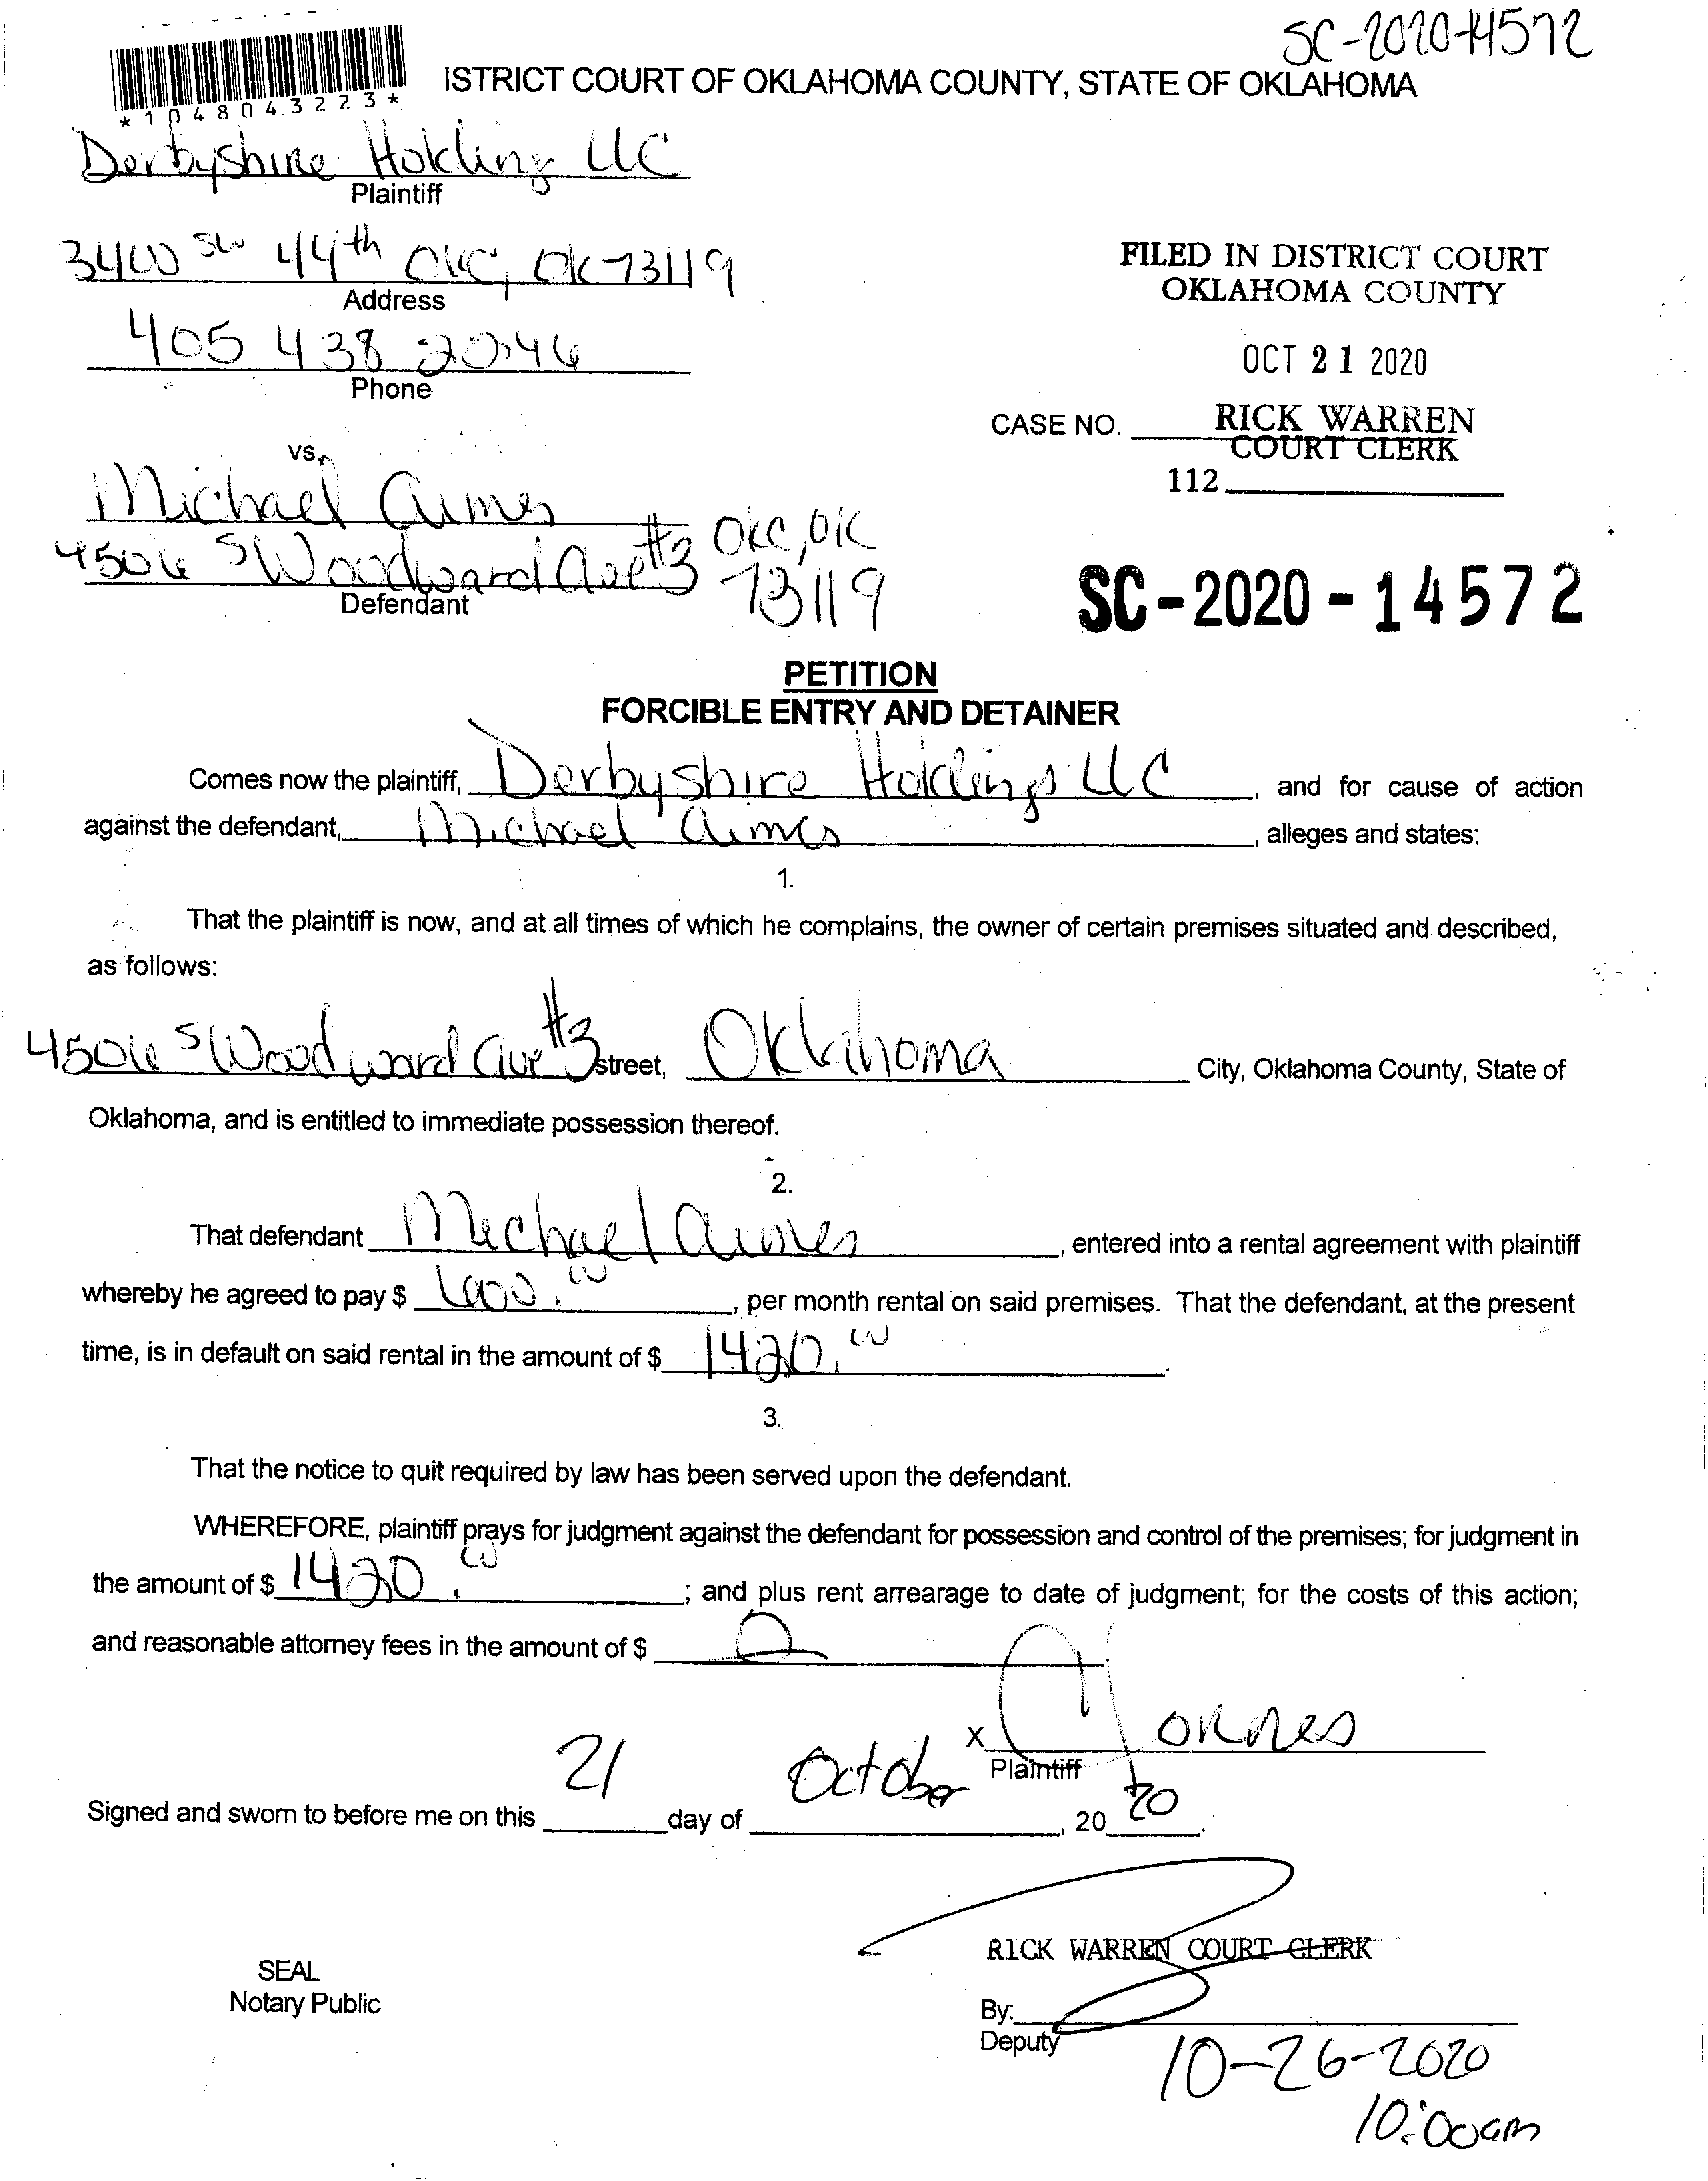 SC-2020-14572
*1048043223*
ISTRICT COURT OF OKLAHOMA COUNTY, STATE OF OKLAHOMA
Derbyshire Holding LLC
Plaintiff
3400 SW 44th OKC, OK 73119
Address
FILED IN DISTRICT COURT
OKLAHOMA COUNTY
405 438 2046
Phone
OCT 21 2020
CASE NO. RICK WARREN
COURT CLERK
112
vs.
Michael Aimes
4506 S Woodward Ave #3 OKC, OK
73119
Defendant
SC-2020-14572
PETITION
FORCIBLE ENTRY AND DETAINER
Comes now the plaintiff, Derbyshire Holdings LLC, and for cause of action
against the defendant, Michael Aimes, alleges and states:
1.
That the plaintiff is now, and at all times of which he complains, the owner of certain premises situated and described,
as follows:
4506 S Woodward Ave #3 street, Oklahoma City, Oklahoma County, State of
Oklahoma, and is entitled to immediate possession thereof.
2.
That defendant Michael Aimes, entered into a rental agreement with plaintiff
whereby he agreed to pay $ 600.00, per month rental on said premises. That the defendant, at the present
time, is in default on said rental in the amount of $ 1420.00.
3.
That the notice to quit required by law has been served upon the defendant.
WHEREFORE, plaintiff prays for judgment against the defendant for possession and control of the premises; for judgment in
the amount of $ 1420.00; and plus rent arrearage to date of judgment; for the costs of this action;
and reasonable attorney fees in the amount of $
X
Plaintiff
Signed and sworn to before me on this 21 day of October, 2020.
RICK WARREN COURT CLERK
SEAL
Notary Public
By:
Deputy
10-26-2020
10:00am